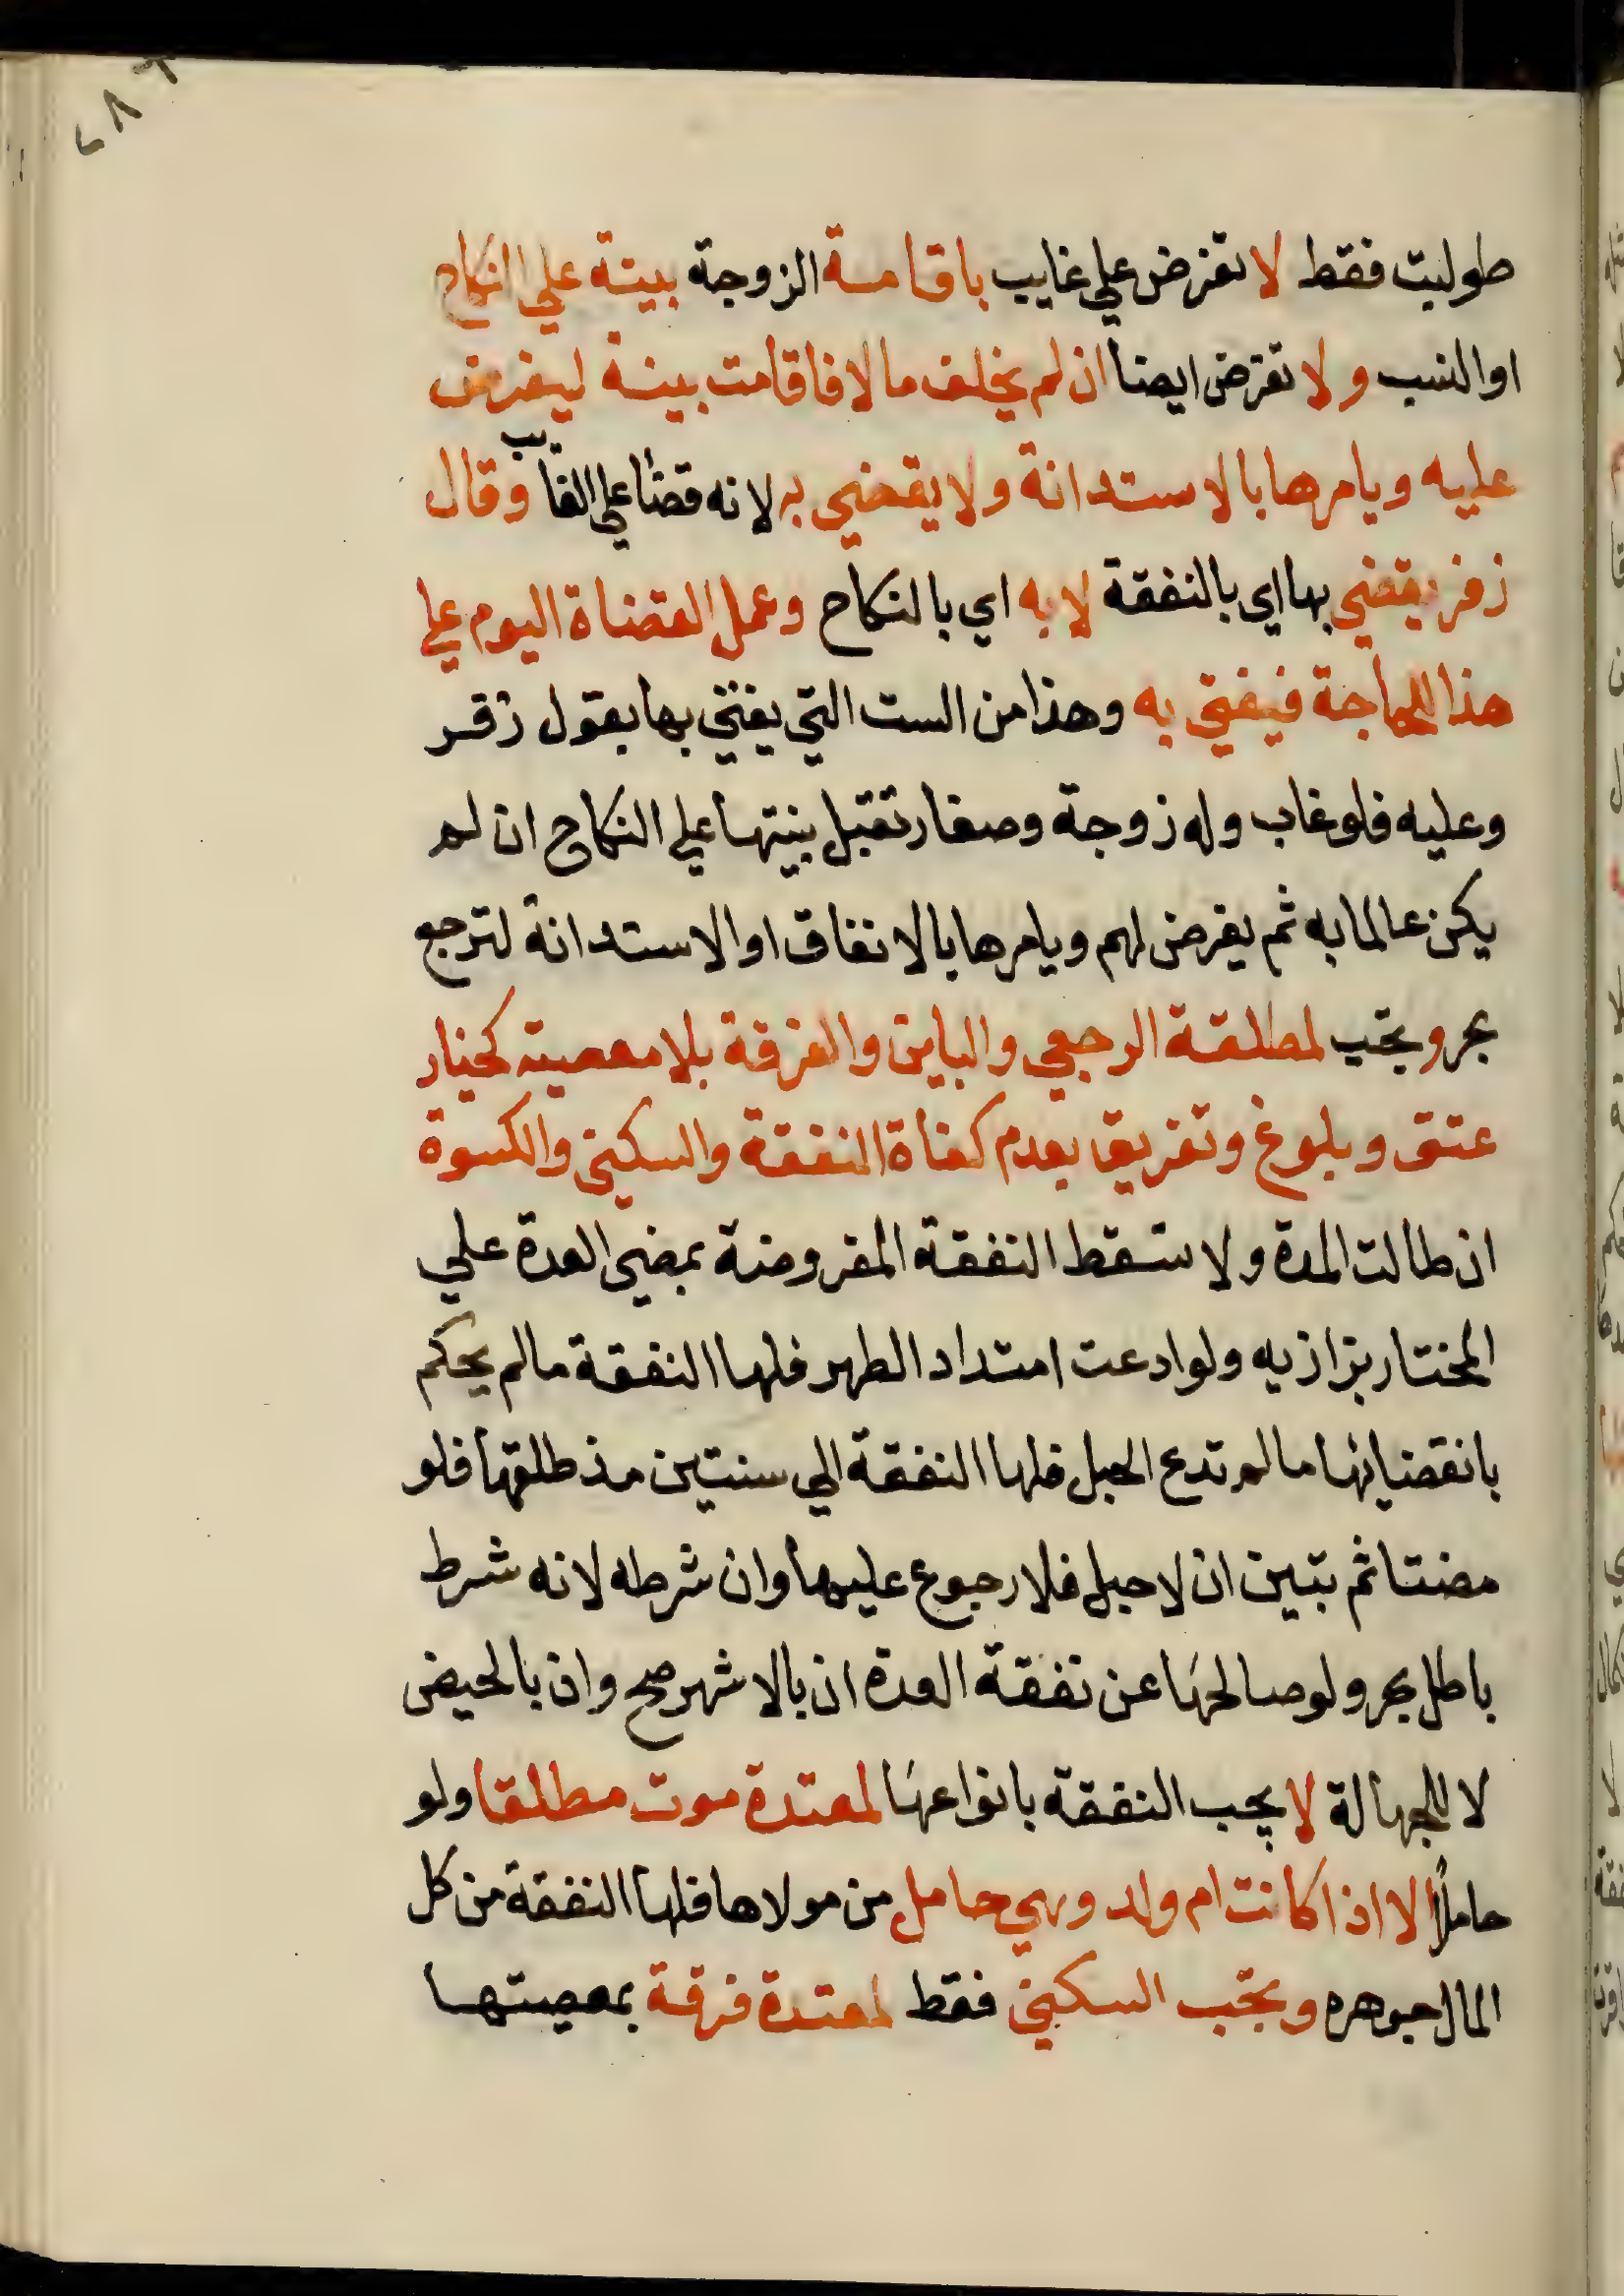 ٢٨٦
طولبت فقط لا تفرض علي غايب باقامة الزوجة بينة علي النكاح
او النسب ولا تفرض ايضا ان لم يخلف مالا فاقامت بينة ليفرض
عليه ويامرها بالاستدانة ولا يقضي به لانه قضا علي الغايب وقال
زفر يقضي بها اي بالنفقة لا به اي بالنكاح وعمل القضاة اليوم علي
هذا للحاجة فيفتي به وهذا من الست التي يفتي بها بقول زفر
وعليه فلو غاب وله زوجة وصغار تقبل بينتها علي النكاح ان لم
يكن عالما به ثم يفرض لهم ويامرها بالانفاق او الاستدانة لترجع
بحر ويجب لمطلقة الرجعي والباين والفرقة بلا معصية كخيار
عتق وبلوغ وتفريق بعدم كفاة النفقة والسكني والكسوة
ان طالت المدة ولا تسقط النفقة المفروضة بمضي العدة علي
المختار بزازيه ولو ادعت امتداد الطهر فلها النفقة مالم يحكم
بانقضايها مالم تدع الحبل فلها النفقة الي سنتين مذ طلقها فلو
مضتا ثم تبين ان لا حبل فلا رجوع عليها وان شرطه لانه شرط
باطل بحر ولو صالحها عن نفقة العدة ان بالاشهر صح وان بالحيض
لا للجهالة لا يجب النفقة بانواعها لمعتدة موت مطلقا ولو
حاملاً الا اذا كانت ام ولد وهي حامل من مولاها فلها النفقة من كل
المال جوهره ويجب السكني فقط لمعتدة فرقة بمعصيتها